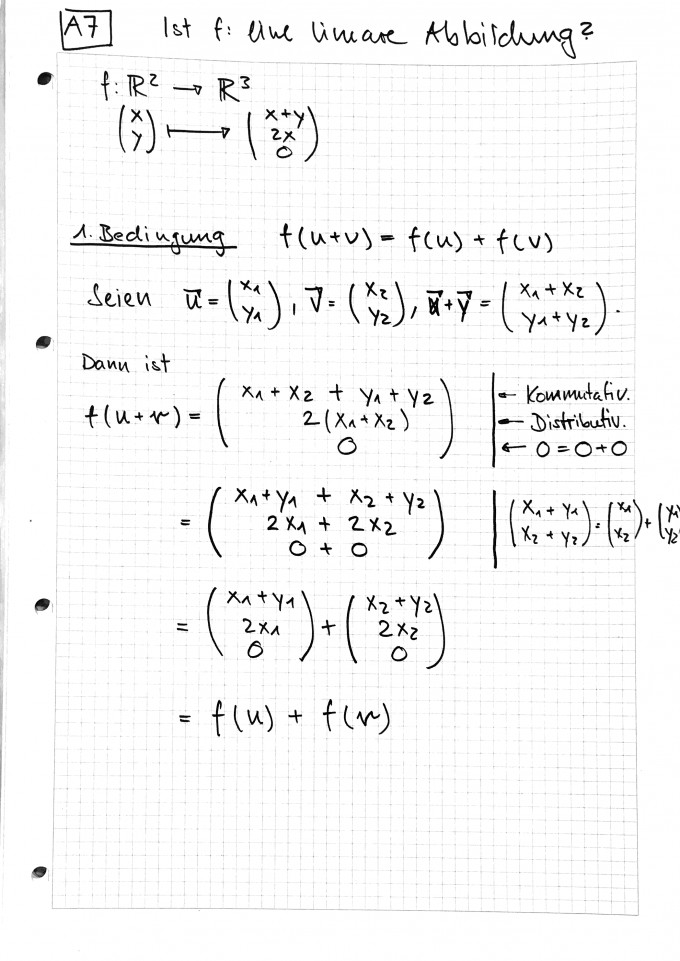 A7 Ist f: eine lineare Abbildung?
f: ℝ² → ℝ³
(x y) ↦ (x+y 2x 0)
1. Bedingung f(u+v) = f(u) + f(v)
Seien u⃗ = (x₁ y₁), v⃗ = (x₂ y₂), u⃗+v⃗ = (x₁+x₂ y₁+y₂).
Dann ist
f(u+v) = (x₁+x₂ + y₁+y₂ 2(x₁+x₂) 0) | ← Kommutativ. ← Distributiv. ← 0=0+0
= (x₁+y₁ + x₂+y₂ 2x₁ + 2x₂ 0+0) | (x₁+y₁ x₂+y₂) = (x₁ x₂) + (y₁ y₂
= (x₁+y₁ 2x₁ 0) + (x₂+y₂ 2x₂ 0)
= f(u) + f(v)